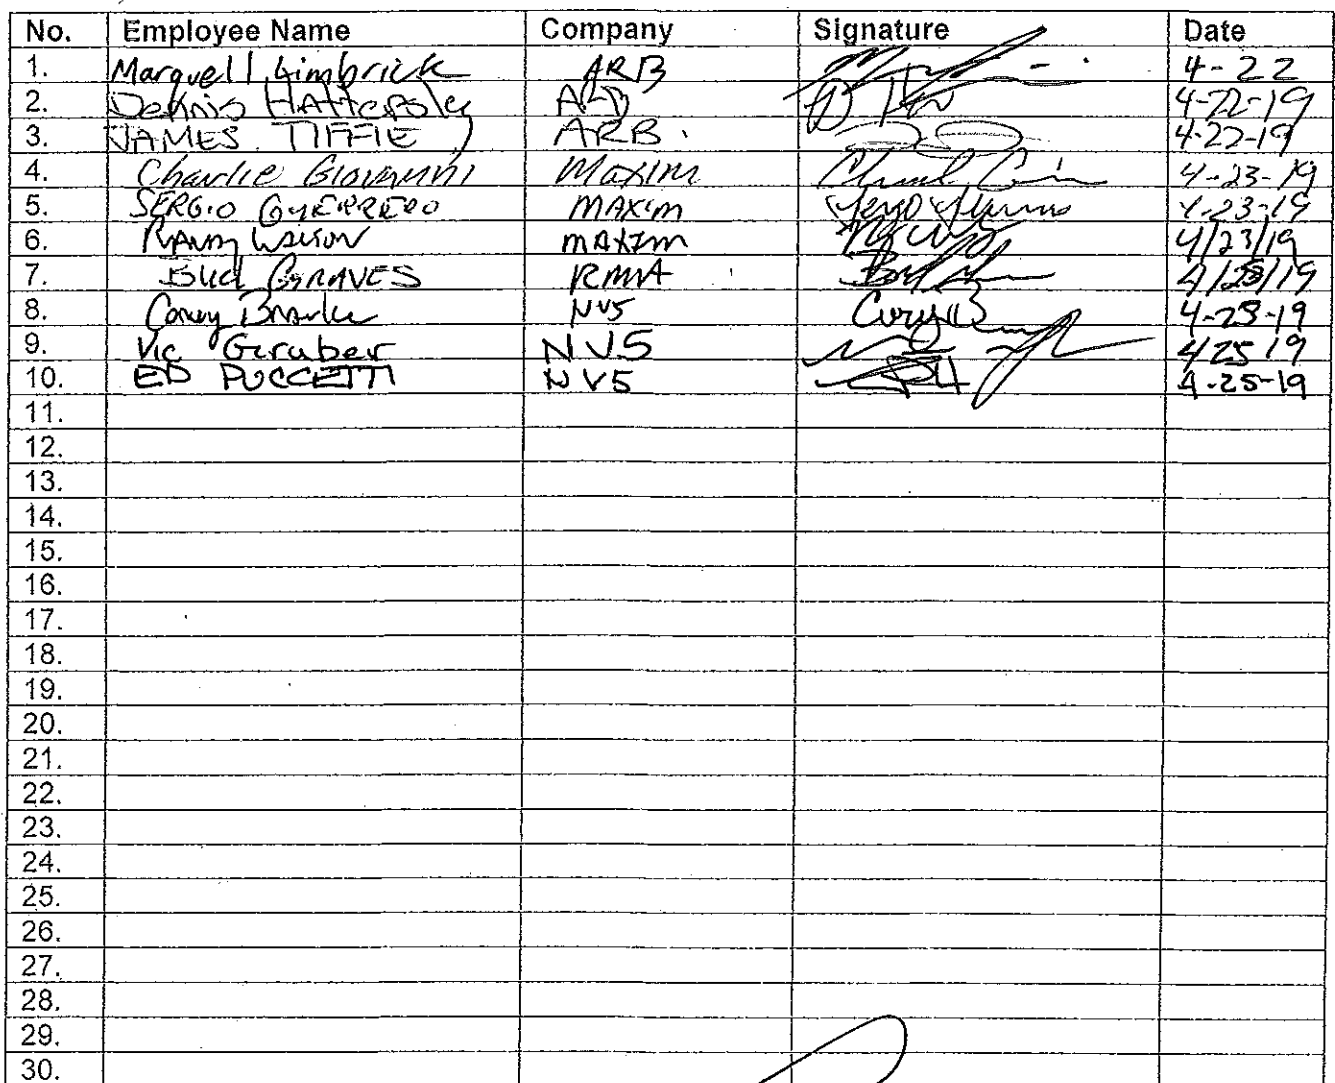 No. Employee Name Company Signature Date
1. Marquell Limbrick ARB 4-22
2. Dennis Hattersley 4-22-19
3. JAMES TIFFIE ARB. 4-22-19
4. Charlie Giovannini Maxim 4-23-19
5. SERGIO GUERRERO MAXIM 4-23-19
6. RANDY WALTON MAXIM 4/23/19
7. BUD GRAVES RMA
8. Corey NV5
9. Vic Gruber NV5 4/25/19
10. ED PUCCETTI NV5 4-25-19
11.
12.
13.
14.
15.
16.
17.
18.
19.
20.
21.
22.
23.
24.
25.
26.
27.
28.
29.
30.